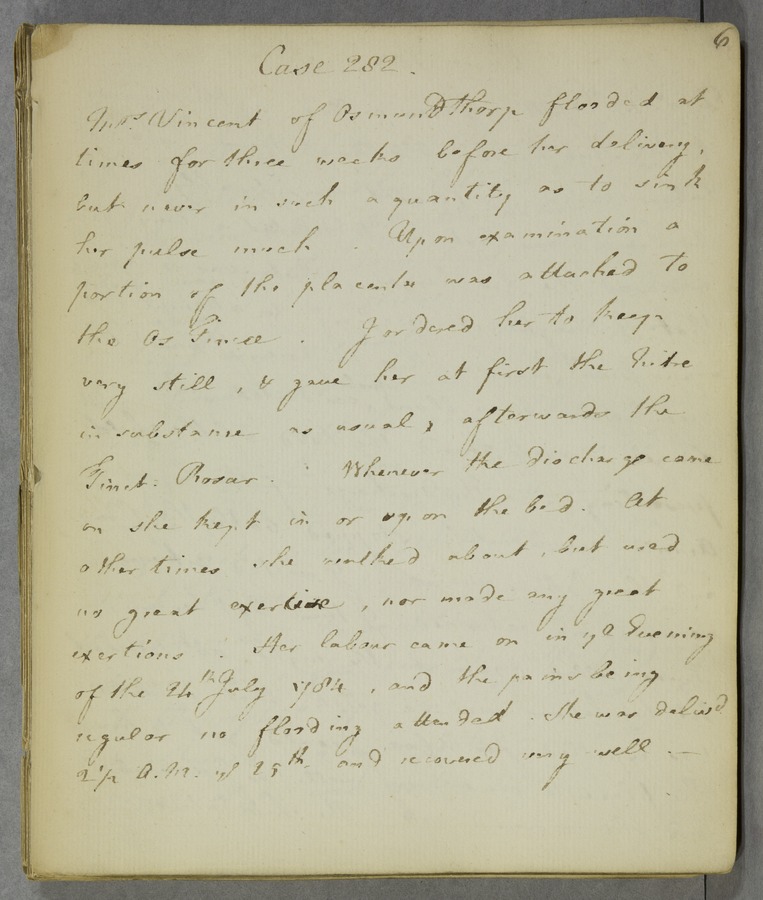 6
Case 282.
Mrs. Vincent of OsmunDthorp flooded at
times for three weeks before her delivery,
but never in such a quantity as to sink
her pulse much. Upon examination a
portion of the placenta was attached to
the Os Tincæ. I ordered her to keep
very still, & gave her at first the Nitre
in substance as usual, afterwards the
Tinct: Rosar. Whenever the discharge came
on she kept in or upon the bed. At
other times she walked about, but used
no great exercise, nor made any great
exertions. Her labour came on in ye Evening
of the 24th July 1784, and the pains being
regular no flooding attended. She was deliv'd
2 1/2 A.M. ye 25th and recovered very well. —